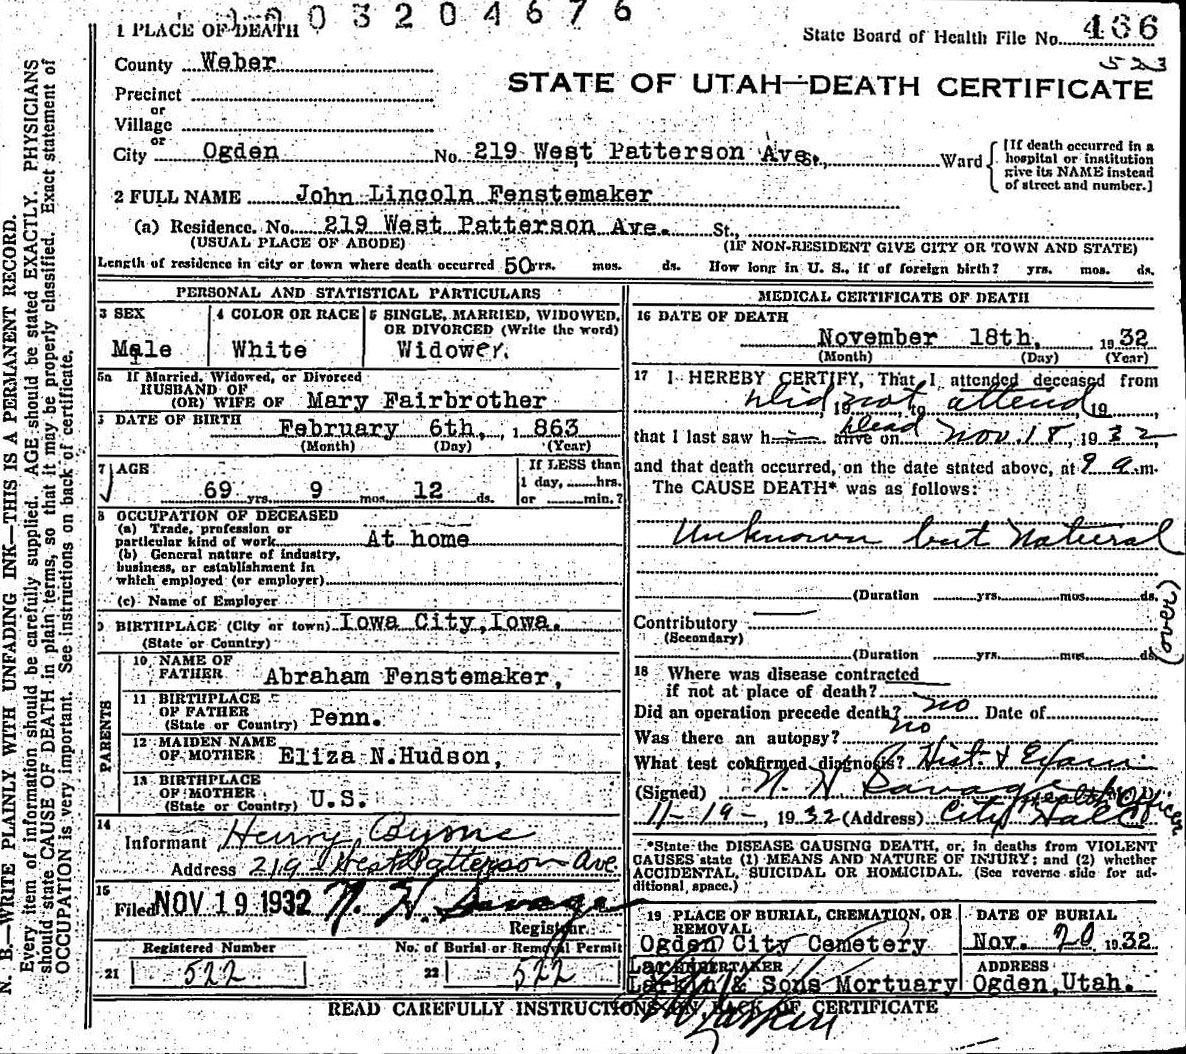 032046 76
1 PLACE OF DEATH
State Board of Health File No. 466
523
County Weber
STATE OF UTAH—DEATH CERTIFICATE
Precinct
or
Village
or
City Ogden No. 219 West Patterson Ave., Ward
[If death occurred in a
hospital or institution
give its NAME instead
of street and number.]
2 FULL NAME John Lincoln Fenstemaker
(a) Residence. No. 219 West Patterson Ave. St.,
(USUAL PLACE OF ABODE) (IF NON-RESIDENT GIVE CITY OR TOWN AND STATE)
Length of residence in city or town where death occurred 50 yrs. mos. ds. How long in U. S., if of foreign birth? yrs. mos. ds.
PERSONAL AND STATISTICAL PARTICULARS
3 SEX
Male
4 COLOR OR RACE
White
5 SINGLE, MARRIED, WIDOWED,
OR DIVORCED (Write the word)
Widower.
5a If Married, Widowed, or Divorced
HUSBAND OF
(OR) WIFE OF Mary Fairbrother
6 DATE OF BIRTH
February 6th, 1863
(Month) (Day) (Year)
7 AGE
69 yrs. 9 mos. 12 ds.
If LESS than
1 day, hrs.
or min.?
8 OCCUPATION OF DECEASED
(a) Trade, profession or
particular kind of work At home
(b) General nature of industry,
business, or establishment in
which employed (or employer)
(c) Name of Employer
9 BIRTHPLACE (City or town) Iowa City, Iowa.
(State or Country)
PARENTS
10 NAME OF
FATHER Abraham Fenstemaker,
11 BIRTHPLACE
OF FATHER
(State or Country) Penn.
12 MAIDEN NAME
OF MOTHER Eliza N. Hudson,
13 BIRTHPLACE
OF MOTHER
(State or Country) U.S.
14
Informant Henry Byrns
Address 219 West Patterson Ave
15
Filed NOV 19 1932 N. H. Savage
Registrar.
Registered Number
21 522
No. of Burial or Removal Permit
22 522
MEDICAL CERTIFICATE OF DEATH
16 DATE OF DEATH
November 18th, 1932
(Month) (Day) (Year)
17 I HEREBY CERTIFY, That I attended deceased from
Did not attend
, 19 , to , 19 ,
Dead
that I last saw h alive on Nov. 18, 1932,
and that death occurred, on the date stated above, at 9 a.m.
The CAUSE DEATH* was as follows:
Unknown but Natural
(Duration yrs. mos. ds.
(over)
Contributory
(Secondary)
(Duration yrs. mos. ds.
18 Where was disease contracted
if not at place of death?
Did an operation precede death? no Date of
Was there an autopsy? no
What test confirmed diagnosis? Hist. & Exam
(Signed) N. H. Savage M.D.
Health Officer
11-19-, 1932 (Address) City Hall
*State the DISEASE CAUSING DEATH, or, in deaths from VIOLENT
CAUSES state (1) MEANS AND NATURE OF INJURY; and (2) whether
ACCIDENTAL, SUICIDAL OR HOMICIDAL. (See reverse side for ad-
ditional space.)
19 PLACE OF BURIAL, CREMATION, OR
REMOVAL
Ogden City Cemetery
DATE OF BURIAL
Nov. 20 1932
UNDERTAKER
Larkin & Sons Mortuary
ADDRESS
Ogden, Utah.
Larkin
READ CAREFULLY INSTRUCTIONS ON BACK OF CERTIFICATE
N. B.—WRITE PLAINLY WITH UNFADING INK—THIS IS A PERMANENT RECORD.
Every item of information should be carefully supplied. AGE should be stated EXACTLY. PHYSICIANS
should state CAUSE OF DEATH in plain terms, so that it may be properly classified. Exact statement of
OCCUPATION is very important. See instructions on back of certificate.